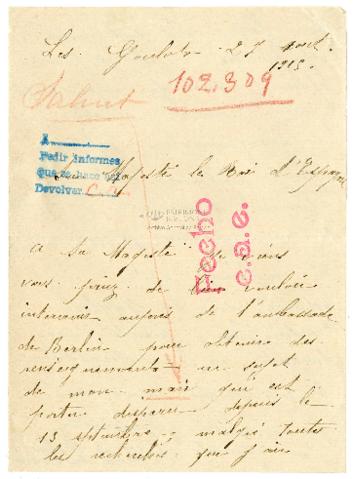 Les Goulots 27 Aout
1915.
102.309
A
Pedir informes
que se hace
Devolver
Sa Majesté le Roi d'Espagne
Hecho
c.a.e.
a Sa Majesté je viens
vous priez de bien vouloir
intervenir aupres de l'ambassade
de Berlin pour obtenir des
renseignements au sujet
de mon mari qui est
porter disparu depuis le
13 septembre malgré toutes
les recherches que j'ai